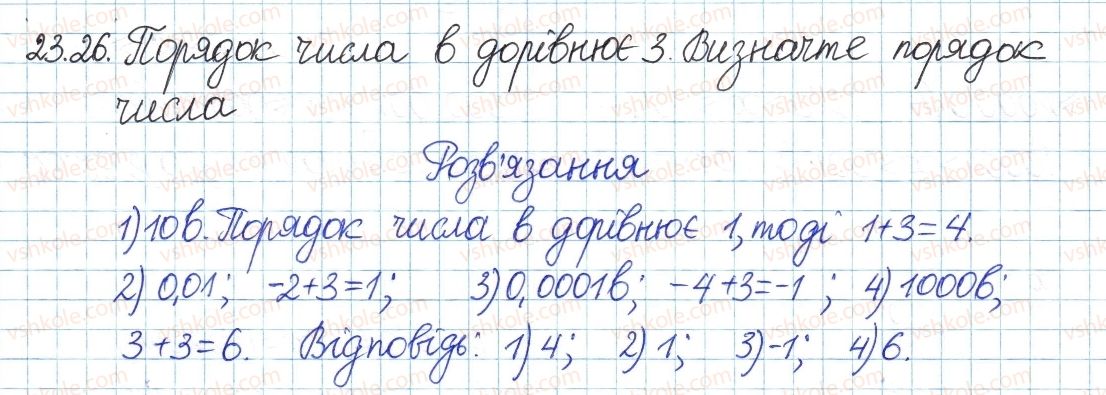 23.26. Порядок числа в дорівнює 3. Визначте порядок
числа
Розв'язання
1) 10в. Порядок числа в дорівнює 1, тоді 1+3=4.
2) 0,01; -2+3=1; 3) 0,0001в; -4+3=-1 ; 4) 1000в;
3+3=6. Відповідь: 1) 4; 2) 1; 3) -1; 4) 6.